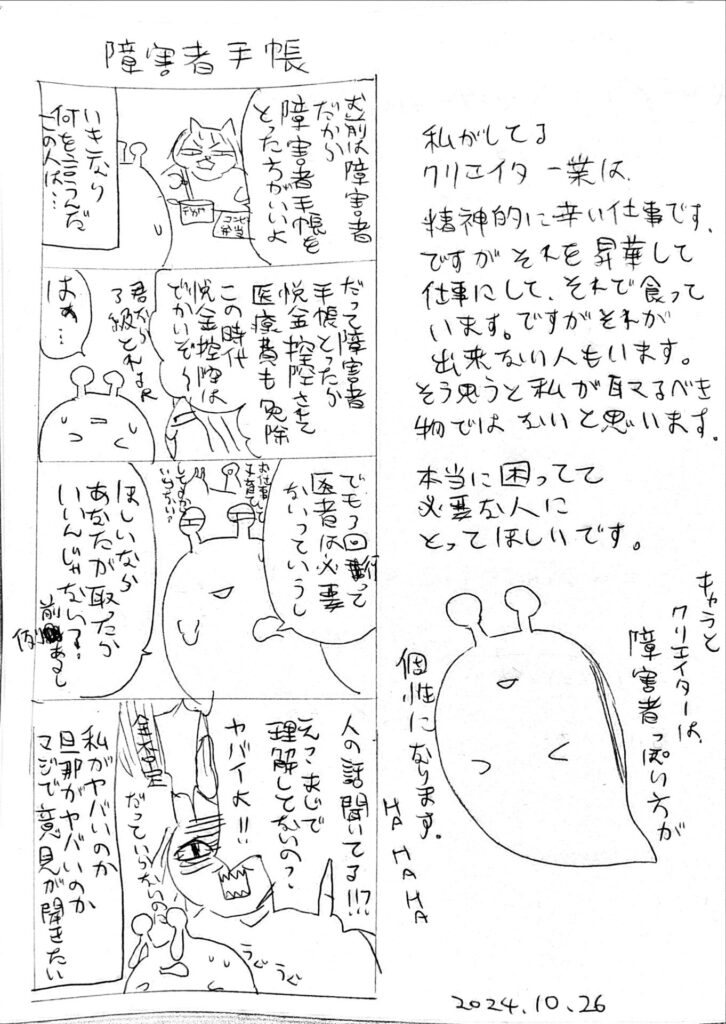 障害者手帳
お前は障害者
だから
障害者手帳を
とった方がいいよ
コンビニ
弁当
いきなり
何を言うんだ
この人は…
だって障害者
手帳とったら
税金控除させて
医療費も免除
この時代
税金控除は
でかいぞ〜
君なら
3級とれるよ
はぁ…
でも3回行って
医者は必要
ないっていうし
お仕事して
子育て
ほしいなら
あなたが取ったら
いいんじゃない?
前例あるし
人の話聞いてる!!?
えっまじで
理解してないの?
ヤバイよ!!
全否定
だっていらないの
うぐ
うぐ
私がヤバいのか
旦那がヤバいのか
マジで意見が聞きたい
私がしてる
クリエイター業は
精神的に辛い仕事です。
ですがそれを昇華して
仕事にして、それで食って
います。ですがそれが
出来ない人もいます。
そう思うと私が取るべき
物ではないと思います。
本当に困ってて
必要な人に
とってほしいです。
クリエイターは、
障害者っぽい方が
個性になります。
HA HA HA
2024.10.26